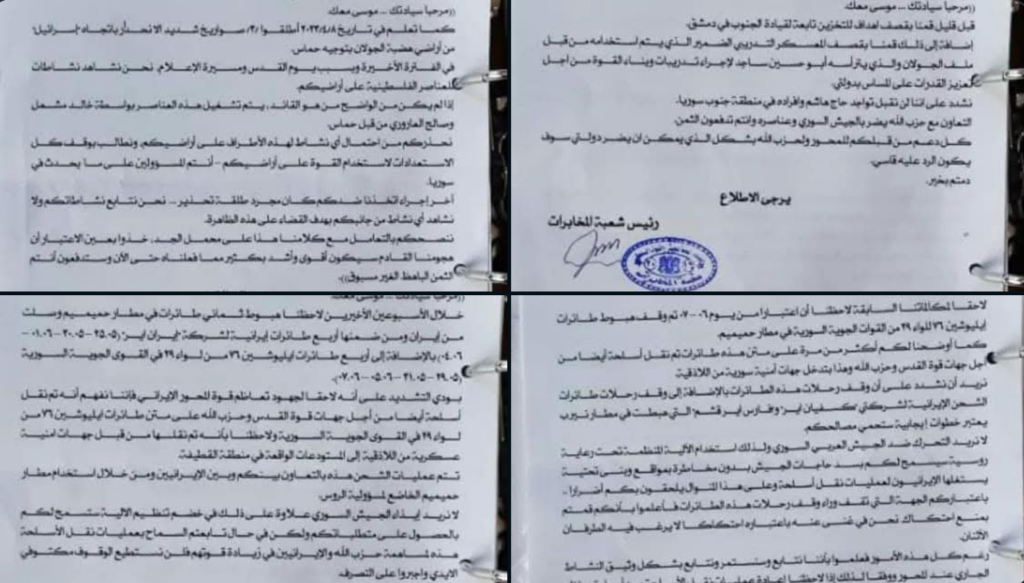 ((مرحبا سيادتك ... موسى معك.
كما تعلم في تاريخ ٢٠٢٣/٤/٨ أطلقوا /٣/ صواريخ شديد الانحدار باتجاه "إسرائيل"
من أراضي هضبة الجولان بتوجيه حماس.
في الفترة الأخيرة وبسبب يوم القدس ومسيرة الإعلام. نحن نشاهد نشاطات
للعناصر الفلسطينية على أراضيكم.
إذا لم يكن من الواضح من هو القائد، يتم تشغيل هذه العناصر بواسطة خالد مشعل
وصالح العاروري من قبل حماس.
نحذركم من احتمال أي نشاط لهذه الأطراف على أراضيكم. ونطالب بوقف كل
الاستعدادات لاستخدام القوة على أراضيكم – أنتم المسؤولين على ما يحدث في
سوريا.
آخر إجراء اتخذنا ضدكم كان مجرد طلقة تحذير ... نحن نتابع نشاطاتكم ولا
نشاهد أي نشاط من جانبكم بهدف القضاء على هذه الظاهرة.
ننصحكم بالتعامل مع كلامنا هذا على محمل الجد. خذوا بعين الاعتبار أن
هجومنا القادم سيكون أقوى وأشد بكثير مما فعلناه حتى الآن وستدفعون أنتم
الثمن الباهظ الغير مسبوق)).
((مرحبا سيادتك ... موسى معك.
قبل قليل قمنا بقصف اهداف للتخزين تابعة لقيادة الجنوب في دمشق.
إضافة إلى ذلك قمنا بقصف المعسكر التدريبي الضمير الذي يتم استخدامه من قبل
ملف الجولان والذي يترأسه أبو حسين ساجد لإجراء تدريبات وبناء القوة من اجل
تعزيز القدرات على المساس بدولتي.
نشدد على اننا لن نقبل تواجد حاج هاشم وافراده في منطقة جنوب سوريا.
التعاون مع حزب الله يضر بالجيش السوري وعناصره وانتم تدفعون الثمن.
كل دعم من قبلكم للمحور ولحزب الله بشكل الذي يمكن ان يضر دولتي سوف
يكون الرد عليه قاسي.
دمتم بخير.
يرجى الاطلاع
رئيس شعبة المخابرات
((مرحبا سيادتك ... موسى معك.
خلال الأسبوعين الأخيرين لاحظنا هبوط ثماني طائرات في مطار حميميم وصلت
من إيران ومن ضمنها أربع طائرات إيرانية لشركة "إيران اير" (٢٥.٠٥ – ٣٠.٠٥ – ٠١.٠٦ –
٠٤.٠٦) بالإضافة إلى أربع طائرات ايليوشين ٧٦ من لواء ٢٩ في القوى الجوية السورية
(٢٩.٠٥ – ٣١.٠٥ – ٠٥.٠٦ – ٠٧.٠٦).
بودي التشديد على أنه لاحقا لجهود تعاظم قوة المحور الإيراني فإننا نفهم أنه تم نقل
أسلحة أيضا من أجل جهات قوة القدس وحزب الله على متن طائرات ايليوشين ٧٦ من
لواء ٢٩ في القوى الجوية السورية ولاحظنا بأنه تم نقلها من قبل جهات امنية
عسكرية من اللاذقية إلى المستودعات الواقعة في منطقة القطيفة.
تتم عمليات الشحن هذه بالتعاون بينكم وبين الإيرانيين ومن خلال استخدام مطار
حميميم الخاضع لمسؤولية الروس.
لا نريد إيذاء الجيش السوري علاوة على ذلك في خضم تنظيم الالية ستسمح لكم
بالحصول على متطلباتكم ولكن في حال تابعتم السماح بعمليات نقل الأسلحة
هذه لمساهمة حزب الله والإيرانيين في زيادة قوتهم فلن نستطيع الوقوف مكتوفي
الايدي واجبروا على التصرف.
لاحقا لمكالماتنا السابقة لاحظنا أن اعتبارا من يوم ٠٦-٠٧ تم وقف هبوط طائرات
ايليوشين ٧٦ للواء ٢٩ من القوات الجوية السورية في مطار حميميم.
كما أوضحنا لكم أكثر من مرة على متن هذه طائرات تم نقل أسلحة أيضا من
أجل جهات قوة القدس وحزب الله وهذا بتدخل جهات أمنية سورية من اللاذقية.
نريد أن نشدد على أن وقف رحلات هذه الطائرات بالإضافة إلى وقف رحلات طائرات
الشحن الإيرانية لشركاتي "كسفيان اير" و"فارس اير قشم" التي هبطت في مطار نيرب
يعتبر خطوات إيجابية ستحمي مصالحكم.
لا نريد التحرك ضد الجيش العربي السوري ولذلك استخدام الألية المنظمة تحت رعاية
روسية سيسمح لكم بسد حاجات الجيش بدون مخاطرة بمواقع وبنى تحتية
يستغلها الإيرانيون لعمليات نقل أسلحة وعلى هذا المنوال يلحقون بكم اضرارا ..
باعتباركم الجهة التي تقف وراء وقف رحلات هذه الطائرات فأعلموا بأنكم قمتم
بمنع احتكاك نحن في غنى عنه باعتباره احتكاكا لا يرغب فيه الطرفان
الأثنان.
رغم كل هذه الأمور فعلموا بأننا نتابع وسنستمر ونتابع بشكل وثيق النشاط